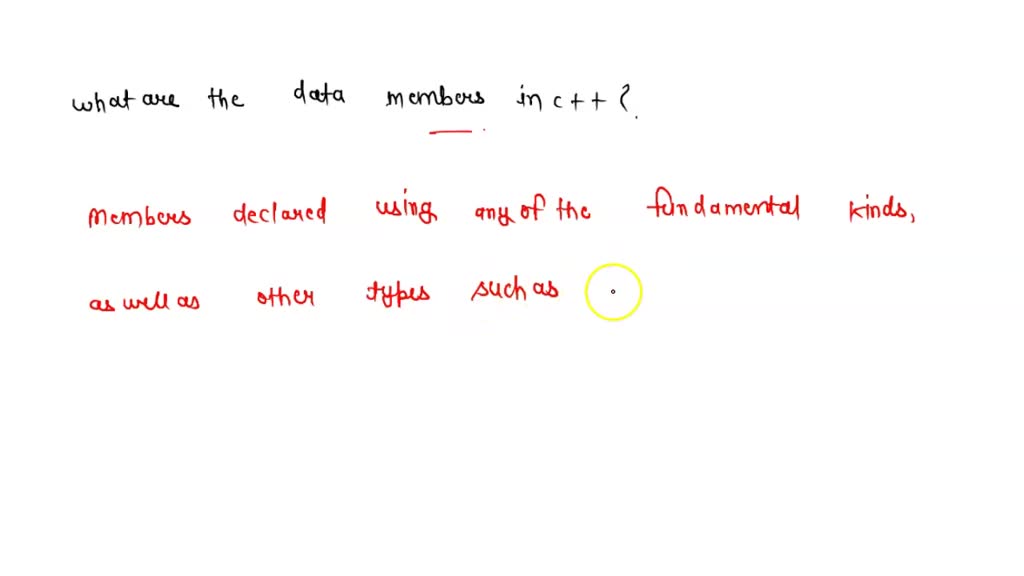 what are the data members in c++?
Members declared using any of the fundamental kinds,
as well as other types such as